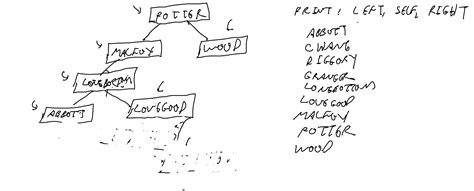 POTTER
PRINT: LEFT, SELF, RIGHT
MALFOY
WOOD
LONGBOTTOM
ABBOTT
LOVEGOOD
ABBOTT
CHANG
DIGGORY
GRANGER
LONGBOTTOM
LOVEGOOD
MALFOY
POTTER
WOOD